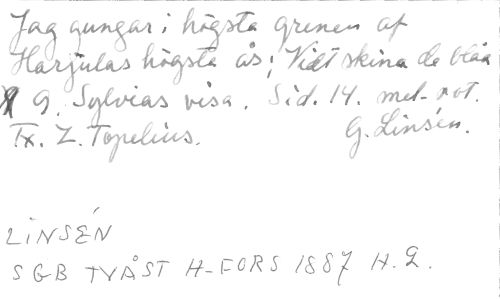 Jag gungar i högsta grenen af
Harjulas högsta ås; Vidt skina de blåa
9. Sylvias visa. Sid. 14. mel-not.
Tx. Z. Topelius. G. Linsén.
LINSÉN
SGB TVÅST H-FORS 1887 H.G.